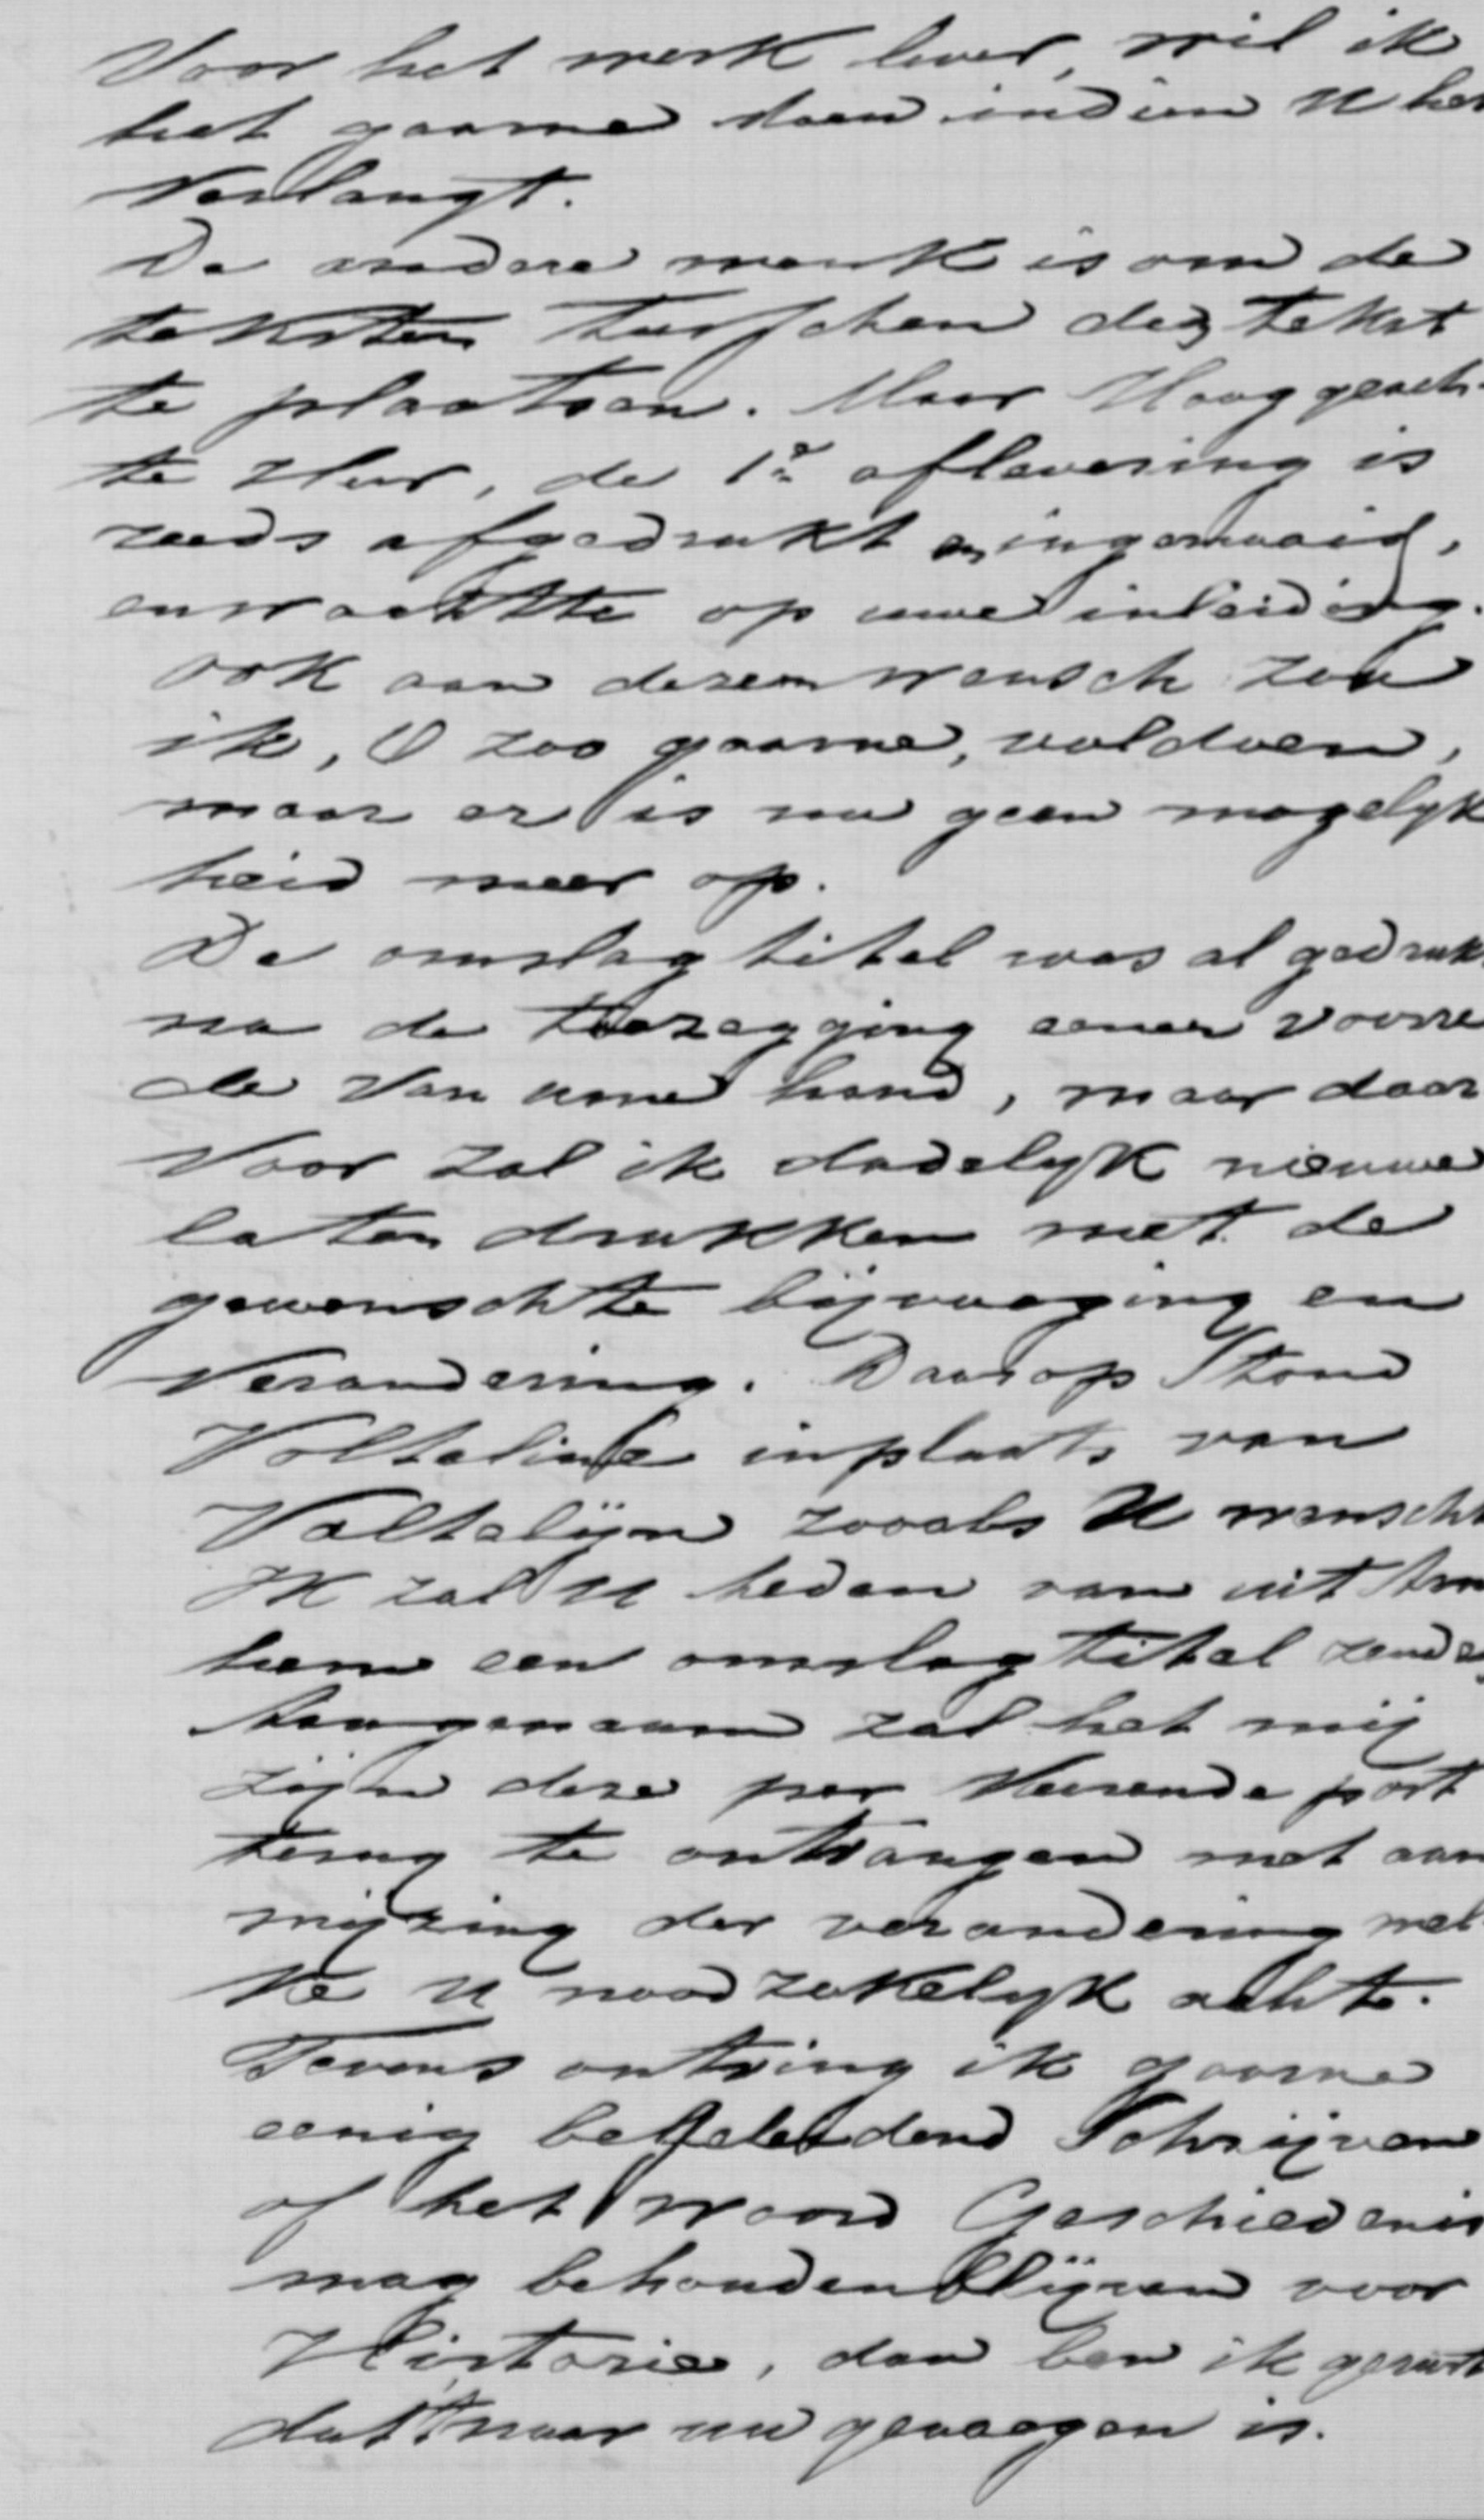 Voor het werk lever, wil ik
het gaarne doen indien U het
Verlangt.
De andere wenk is om de
teksten tusschen den tekst
te plaatsen. Maar Hooggeach-
te Heer, de 1e aflevering is
reeds afgedrukt en ingenaaid,
en wachtte op uwe inleiding.
ook aan dezen wensch zou
ik, O zoo gaarne, voldoen,
maar er is nu geen mogelyk
heid meer op.
De omslag titel was al gedrukt
na de toezegging eener voorre
de Van uwe hand, maar daar
Voor zal ik dadelyk nieuwe
laten drukken met de
gewenschte bijvoeging en
Verandering. Daarop Stond
Voltaline inplaats van
Valtelijn zooals U wenscht
Ik zal U heden van uit
een omslag titel zenden
Aangenaam zal het mij
zijn deze per keerende post
terug te ontvangen met aan
wijzing der verandering wel
ke U noodzakelyk achte.
Tevens ontving ik gaarne
eenig begeleidend Schrijven
of het woord Geschiedenis
mag behouden blijven voor
Historie, dan ben ik gerust
dat 't naar uw genoegen is.